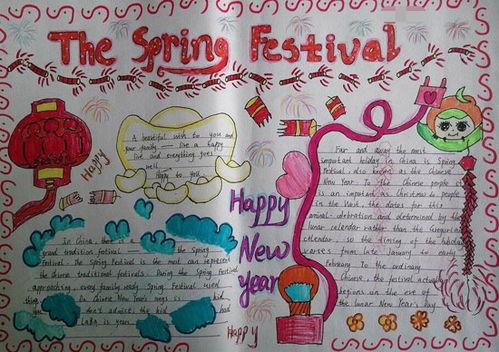 The Spring Festival
A beautiful wish to you and
your family — live a happy
life and everything goes
well
Happy to you
Happy
Far and away the most
important holiday in China is Spring
Festival also known as the Chinese
New Year To the Chinese people it
is as important as Christmas to people
in the West the dates for this
annual celebration and determined by the
lunar calendar rather than the Gregorian
calendar so the timing of the holiday
varies from late January to early
February To the ordinary
Chinese, the festival actually
begins on the eve of
the lunar New Year's Day
Happy
New
year
In China, there is a
grand tradition festival the Spring
Festival. The Spring Festival is the most
the Chinese traditional festivals. During the Spring Festival
approaching every family ready Spring Festival used
things. In Chinese New Year's kid
you don't admire, the kid had
Laba is year
Happy